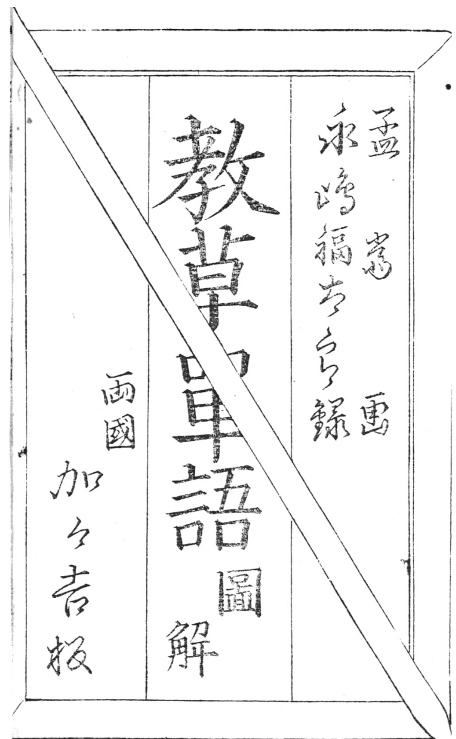 孟斎画
永嶋福太郎録
教草單語圖解
両國
加々吉板